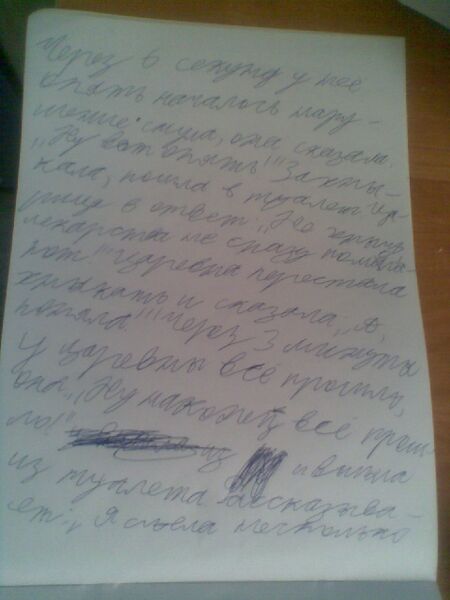 Через 6 секунд у неё
опять началось нару-
шение стула, она сказала
„Ну вот опять!" Захны-
кала, пошла в туалет ца-
рице в ответ: „Но
лекарства не сразу помога-
ют!" Царевна перестала
хныкать и сказала: „А,
поняла!" Через 3 минуты
у царевны всё прошло,
она „Ну наконец всё прош-
ло!" из и вышла
из туалета рассказыва-
ет: „Я съела несколько